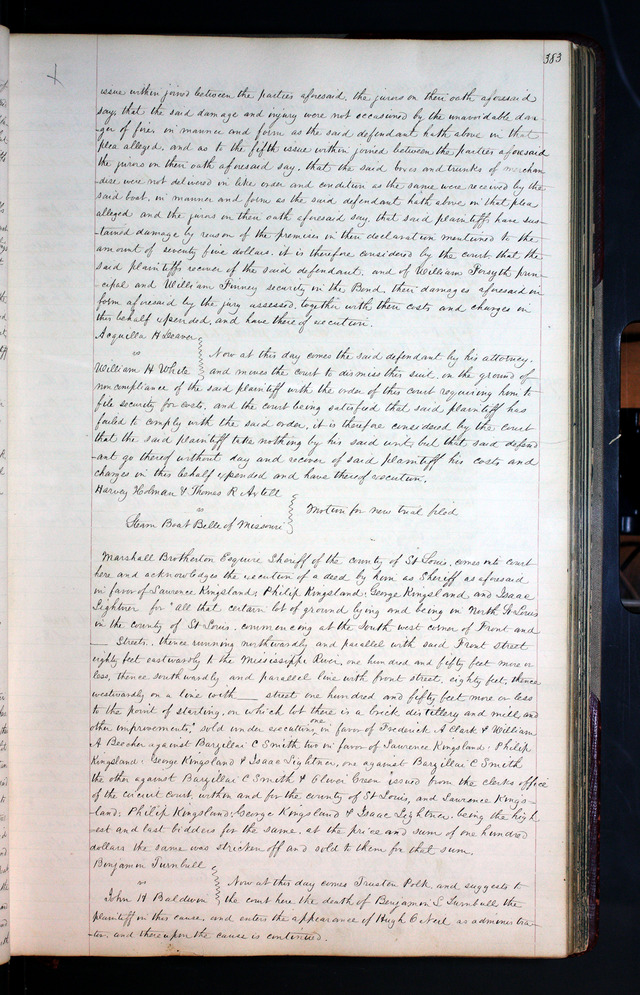 383
issue within joined between the parties aforesaid, the jurors on their oath aforesaid
say, that the said damage and injury were not occasioned by the unavoidable dan-
ger of fire, in manner and form as the said defendant hath above in that
plea alleged, and as to the fifth issue within joined between the parties aforesaid
the jurors on their oath aforesaid say, that the said boxes and trunks of merchan-
-dise were not delivered in like order and condition as the same were received by the
said boat, in manner and form as the said defendant hath above in that plea
alleged and the jurors on their oath aforesaid say, that said plaintiffs have sus-
-tained damage by reason of the premises in their declaration mentioned to the
amount of seventy five dollars. it is therefore considered by the court that the
said plaintiffs recover of the said defendant, and of William Forsyth prin-
-cipal and William Finney security in the Bond, their damages aforesaid in
form aforesaid by the jury assessed, together with their costs and charges in
this behalf expended, and have thereof execution.
Acquilla H Deaver
vs
William H White
Now at this day comes the said defendant by his attorney,
and moves the court to dismiss this suit, on the ground of
non compliance of the said plaintiff with the order of this court requiring him to
file security for costs, and the court being satisfied that said plaintiff has
failed to comply with the said order, it is therefore considered by the court
that the said plaintiff take nothing by his said writ, but that said defend
-ant go thereof without day and recover of said plaintiff his costs and
charges in this behalf expended and have thereof execution.
Harvey Holman & Thomas R Axtell
vs
Steam Boat Belle of Missouri
Motion for new trial filed
Marshall Brotherton Esquire Sheriff of the county of St Louis, comes into court
here and acknowledges the execution of a deed by him as Sheriff as aforesaid
in favor of Lawrence Kingsland, Philip Kingsland, George Kingsland and Isaac
Lightner for "all that certain lot of ground lying and being in North St Louis
in the county of St Louis, commencing at the south west corner of Front and
Streets, thence running northwardly and parallel with said Front street
eighty feet eastwardly to the Mississippi River, one hundred and fifty feet more or
less, thence southwardly and parallel line with front street, eighty feet, thence
westwardly on a line with street one hundred and fifty feet more or less
to the point of starting, on which lot there is a brick distillery and mill, and
other improvements," sold under executions, one in favor of Frederick A Clark & William
A Beecher against Barzillai C Smith two in favor of Lawrence Kingsland, Philip
Kingsland, George Kingsland & Isaac Lightner, one against Barzillai C Smith
the other against Barzillai C Smith & Oliver Green issued from the clerks office
of the circuit court, within and for the county of St Louis, and Lawrence Kings-
land, Philip Kingsland, George Kingsland & Isaac Lightner, being the high
est and last bidders for the same, at the price and sum of one hundred
dollars the same was stricken off and sold to them for that sum.
Benjamin Turnbull
vs
John H Baldwin
Now at this day comes Trusten Polk and suggests to
the court here the death of Benjamin S Turnbull the
plaintiff in this cause, and enters the appearance of Hugh O Neil as administra-
-tor, and thereupon the cause is continued.